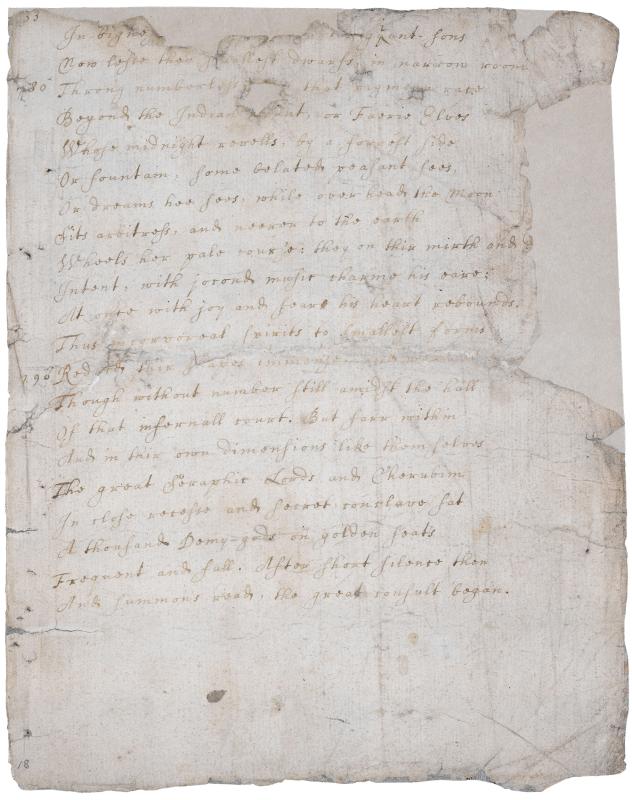 33
In bigne giant-sons
Now lesse then smallest dwarfs, in narrow room
780 Throng numberless that pigmean race
Beyond the Indian mount, or Faerie Elves
Whose midnight revells, by a forrest side
Or fountain, some belated peasant sees,
Or dreams hee sees, while over head the Moon
Sits arbitress, and neerer to the earth
Wheels her pale course; they on thir mirth and d
Intent, with jocond music charme his eare;
At once with joy and feare his heart rebounds.
Thus incorporeal spirits to smallest forms
790 Red thir shapes immense,
Though without number still amidst the hall
Of that infernall court. But farr within
And in thir own dimensions like themselves
The great Seraphic Lords and Cherubim
In close recesse and secret conclave sat
A thousand Demy-gods on golden seats
Frequent and full. After short silence then
And summons read, the great consult began.
18